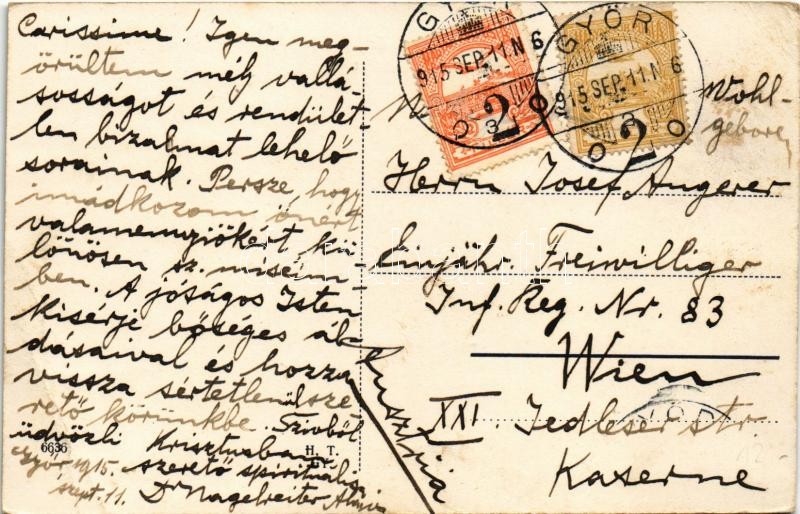 Carissime! Igen meg-
örültem mély vallá-
sosságot és rendület-
len bizalmat lehelő
sorainak. Persze, hogy
imádkozom önért
valamennyiökért, kü-
lönösen sz. miséim-
ben. A jóságos Isten
kisérje bőséges ál-
dásaival és hozza
vissza sértetlenül sze-
rető körünkbe. Szivből
üdvözli Krisztusban
szerető spirituálisa
Győr 1915. szept. 11. Dr Nagelreiter Alajos
6636
H. T.
GYŐR
915 SEP. 11. N 6
2
GYŐR
915 SEP. 11. N 6
2
Wohl-
geboren
Herrn Josef Angerer
Einjähr. Freiwilliger
Inf. Reg. Nr. 83
Wien
XXI. Jedleser str.
Kaserne
Ausztria